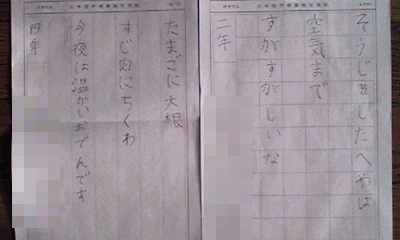 そうじをしたへやは
空気まで
すがすがしいな
二年
たまごに大根
すじ肉にちくわ
今夜は温かいおでんです
四年